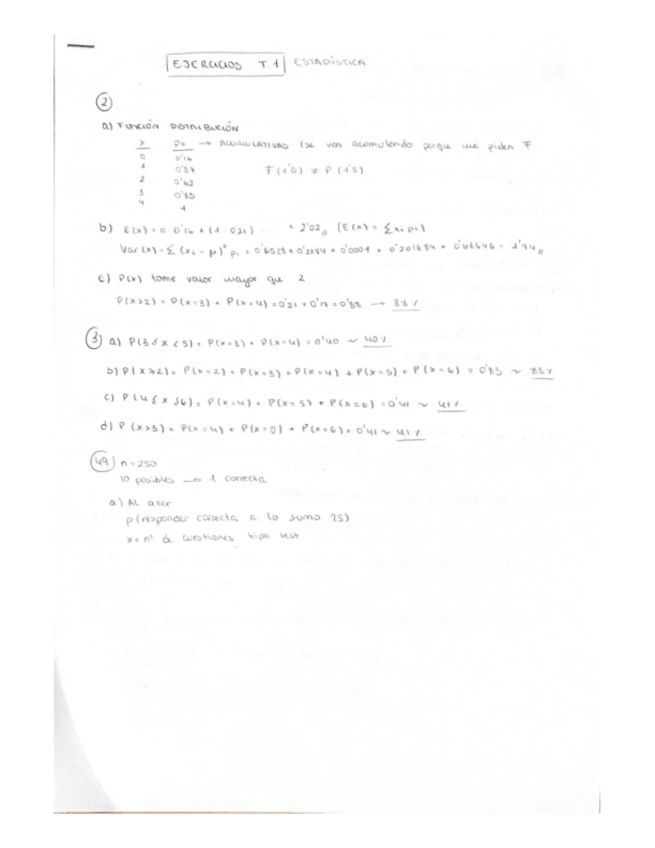 EJERCICIOS T.1 ESTADÍSTICA
2
a) FUNCIÓN DISTRIBUCIÓN
X Px → ACUMULATIVAS (se van acumulando porque me piden F
0 0'16
1 0'37 F(1'5) ≠ P(1'5)
2 0'62
3 0'83
4 1
b) E(x) = 0·0'16 + (1·0'21) .... = 2'02,, (E(x) = Σxi pi)
Var(x) = Σ (xi - μ)² pi = 0'6528 + 0'2184 + 0'0001 + 0'201684 + 0'66646 = 1'74,,
c) P(x) tome valor mayor que 2
P(x>2) = P(x=3) + P(x=4) = 0'21 + 0'17 = 0'38 → 38%
3 a) P(3≤x<5) = P(x=3) + P(x=4) = 0'40 ~ 40%
b) P(x≥2) = P(x=2) + P(x=3) + P(x=4) + P(x=5) + P(x=6) = 0'83 ~ 83%
c) P(4≤x≤6) = P(x=4) + P(x=5) + P(x=6) = 0'41 ~ 41%
d) P(x>3) = P(x=4) + P(x=5) + P(x=6) = 0'41 ~ 41%
49 n=250
10 posibles → 1 correcta
a) AL azar
p(responder correcta a lo sumo 25)
x = nº de cuestiones tipo test